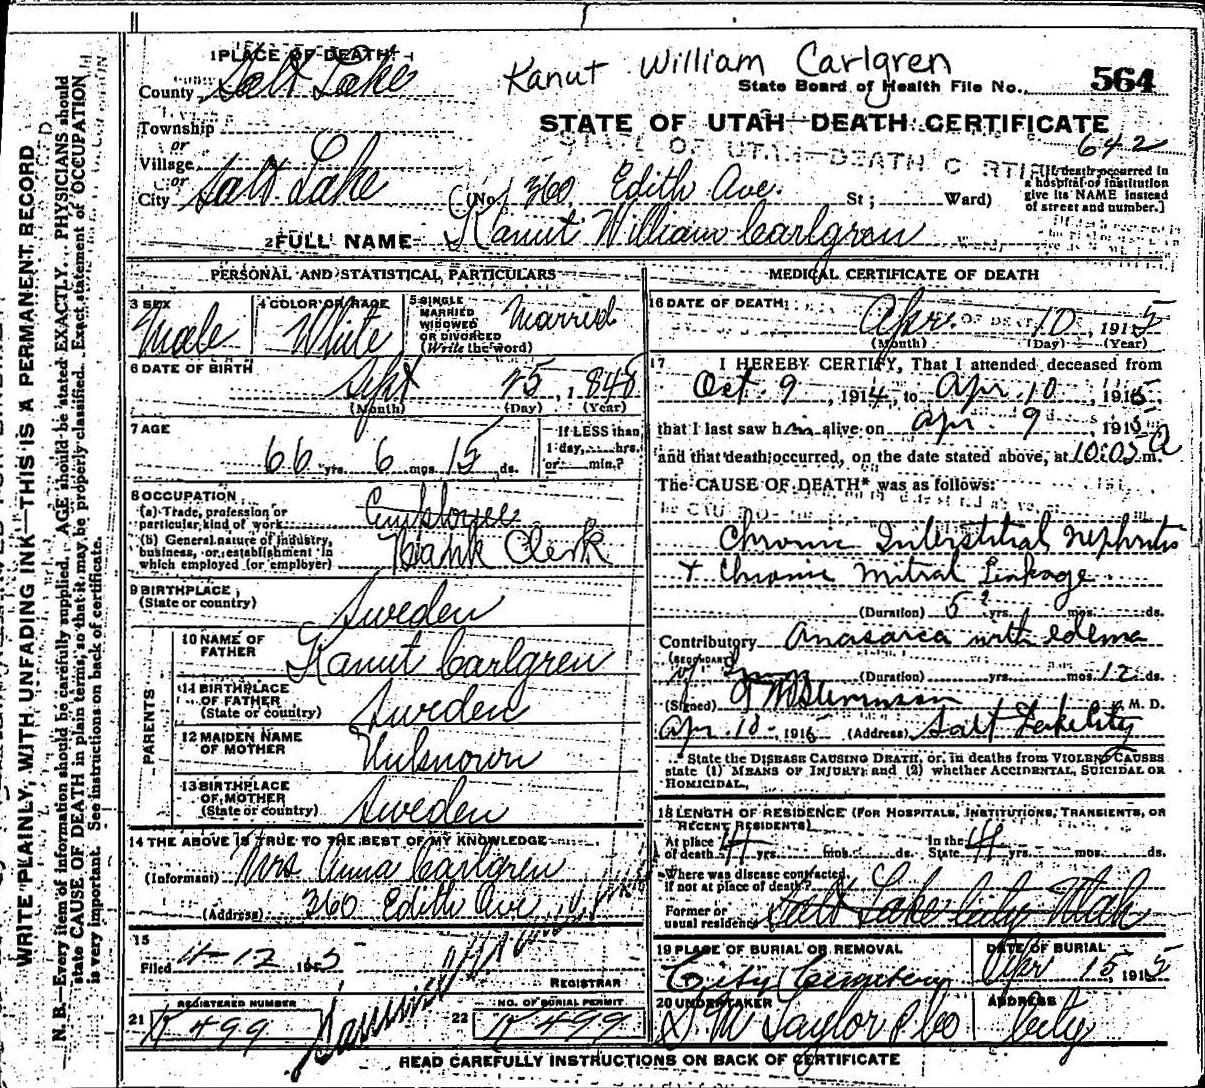 Kanut William Carlgren
1 PLACE OF DEATH
County Salt Lake
State Board of Health File No. 564
Township
or
Village
or
City Salt Lake
STATE OF UTAH—DEATH CERTIFICATE
642
(No. 360 Edith Ave. St; Ward)
[If death occurred in
a hospital or institution
give its NAME instead
of street and number.]
2 FULL NAME Kanut William Carlgren
PERSONAL AND STATISTICAL PARTICULARS
3 SEX Male
4 COLOR OR RACE White
5 SINGLE
MARRIED
WIDOWED
OR DIVORCED
(Write the word) Married
6 DATE OF BIRTH
Sept 25, 1848
(Month) (Day) (Year)
7 AGE
66 yrs. 6 mos. 15 ds.
If LESS than
1 day, hrs.
or min.?
8 OCCUPATION
(a) Trade, profession or
particular kind of work Employee
(b) General nature of industry,
business, or establishment in
which employed (or employer) Bank Clerk
9 BIRTHPLACE
(State or country) Sweden
PARENTS
10 NAME OF
FATHER Kanut Carlgren
11 BIRTHPLACE
OF FATHER
(State or country) Sweden
12 MAIDEN NAME
OF MOTHER Unknown
13 BIRTHPLACE
OF MOTHER
(State or country) Sweden
14 THE ABOVE IS TRUE TO THE BEST OF MY KNOWLEDGE
(Informant) Mrs Anna Carlgren
(Address) 360 Edith Ave
15
Filed 4-12 1915
REGISTRAR
REGISTERED NUMBER
21 K 499
NO. OF BURIAL PERMIT
22 K 499
MEDICAL CERTIFICATE OF DEATH
16 DATE OF DEATH
Apr. 10, 1915
(Month) (Day) (Year)
17 I HEREBY CERTIFY, That I attended deceased from
Oct. 9, 1914, to Apr. 10, 1915
that I last saw him alive on Apr. 9 1915
and that death occurred, on the date stated above, at 10:05 A m.
The CAUSE OF DEATH* was as follows:
Chronic Interstitial nephritis
+ Chronic Mitral Leakage
(Duration) 5 yrs. mos. ds.
Contributory Anasarca with edema
(SECONDARY)
(Duration) yrs. mos. 12 ds.
(Signed) M. D.
Apr. 10 1915 (Address) Salt Lake City
* State the DISEASE CAUSING DEATH, or, in deaths from VIOLENT CAUSES
state (1) MEANS OF INJURY; and (2) whether ACCIDENTAL, SUICIDAL OR
HOMICIDAL.
18 LENGTH OF RESIDENCE (FOR HOSPITALS, INSTITUTIONS, TRANSIENTS, OR
RECENT RESIDENTS)
At place
of death 44 yrs. mos. ds.
In the
State 44 yrs. mos. ds.
Where was disease contracted,
if not at place of death?
Former or
usual residence Salt Lake City Utah
19 PLACE OF BURIAL OR REMOVAL
City Cemetery
DATE OF BURIAL
Apr 15, 1915
20 UNDERTAKER
S M Taylor & Co
ADDRESS
City
READ CAREFULLY INSTRUCTIONS ON BACK OF CERTIFICATE
WRITE PLAINLY, WITH UNFADING INK—THIS IS A PERMANENT RECORD
N. B.—Every item of information should be carefully supplied. AGE should be stated EXACTLY. PHYSICIANS should
state CAUSE OF DEATH in plain terms, so that it may be properly classified. Exact statement of OCCUPATION
is very important. See instructions on back of certificate.